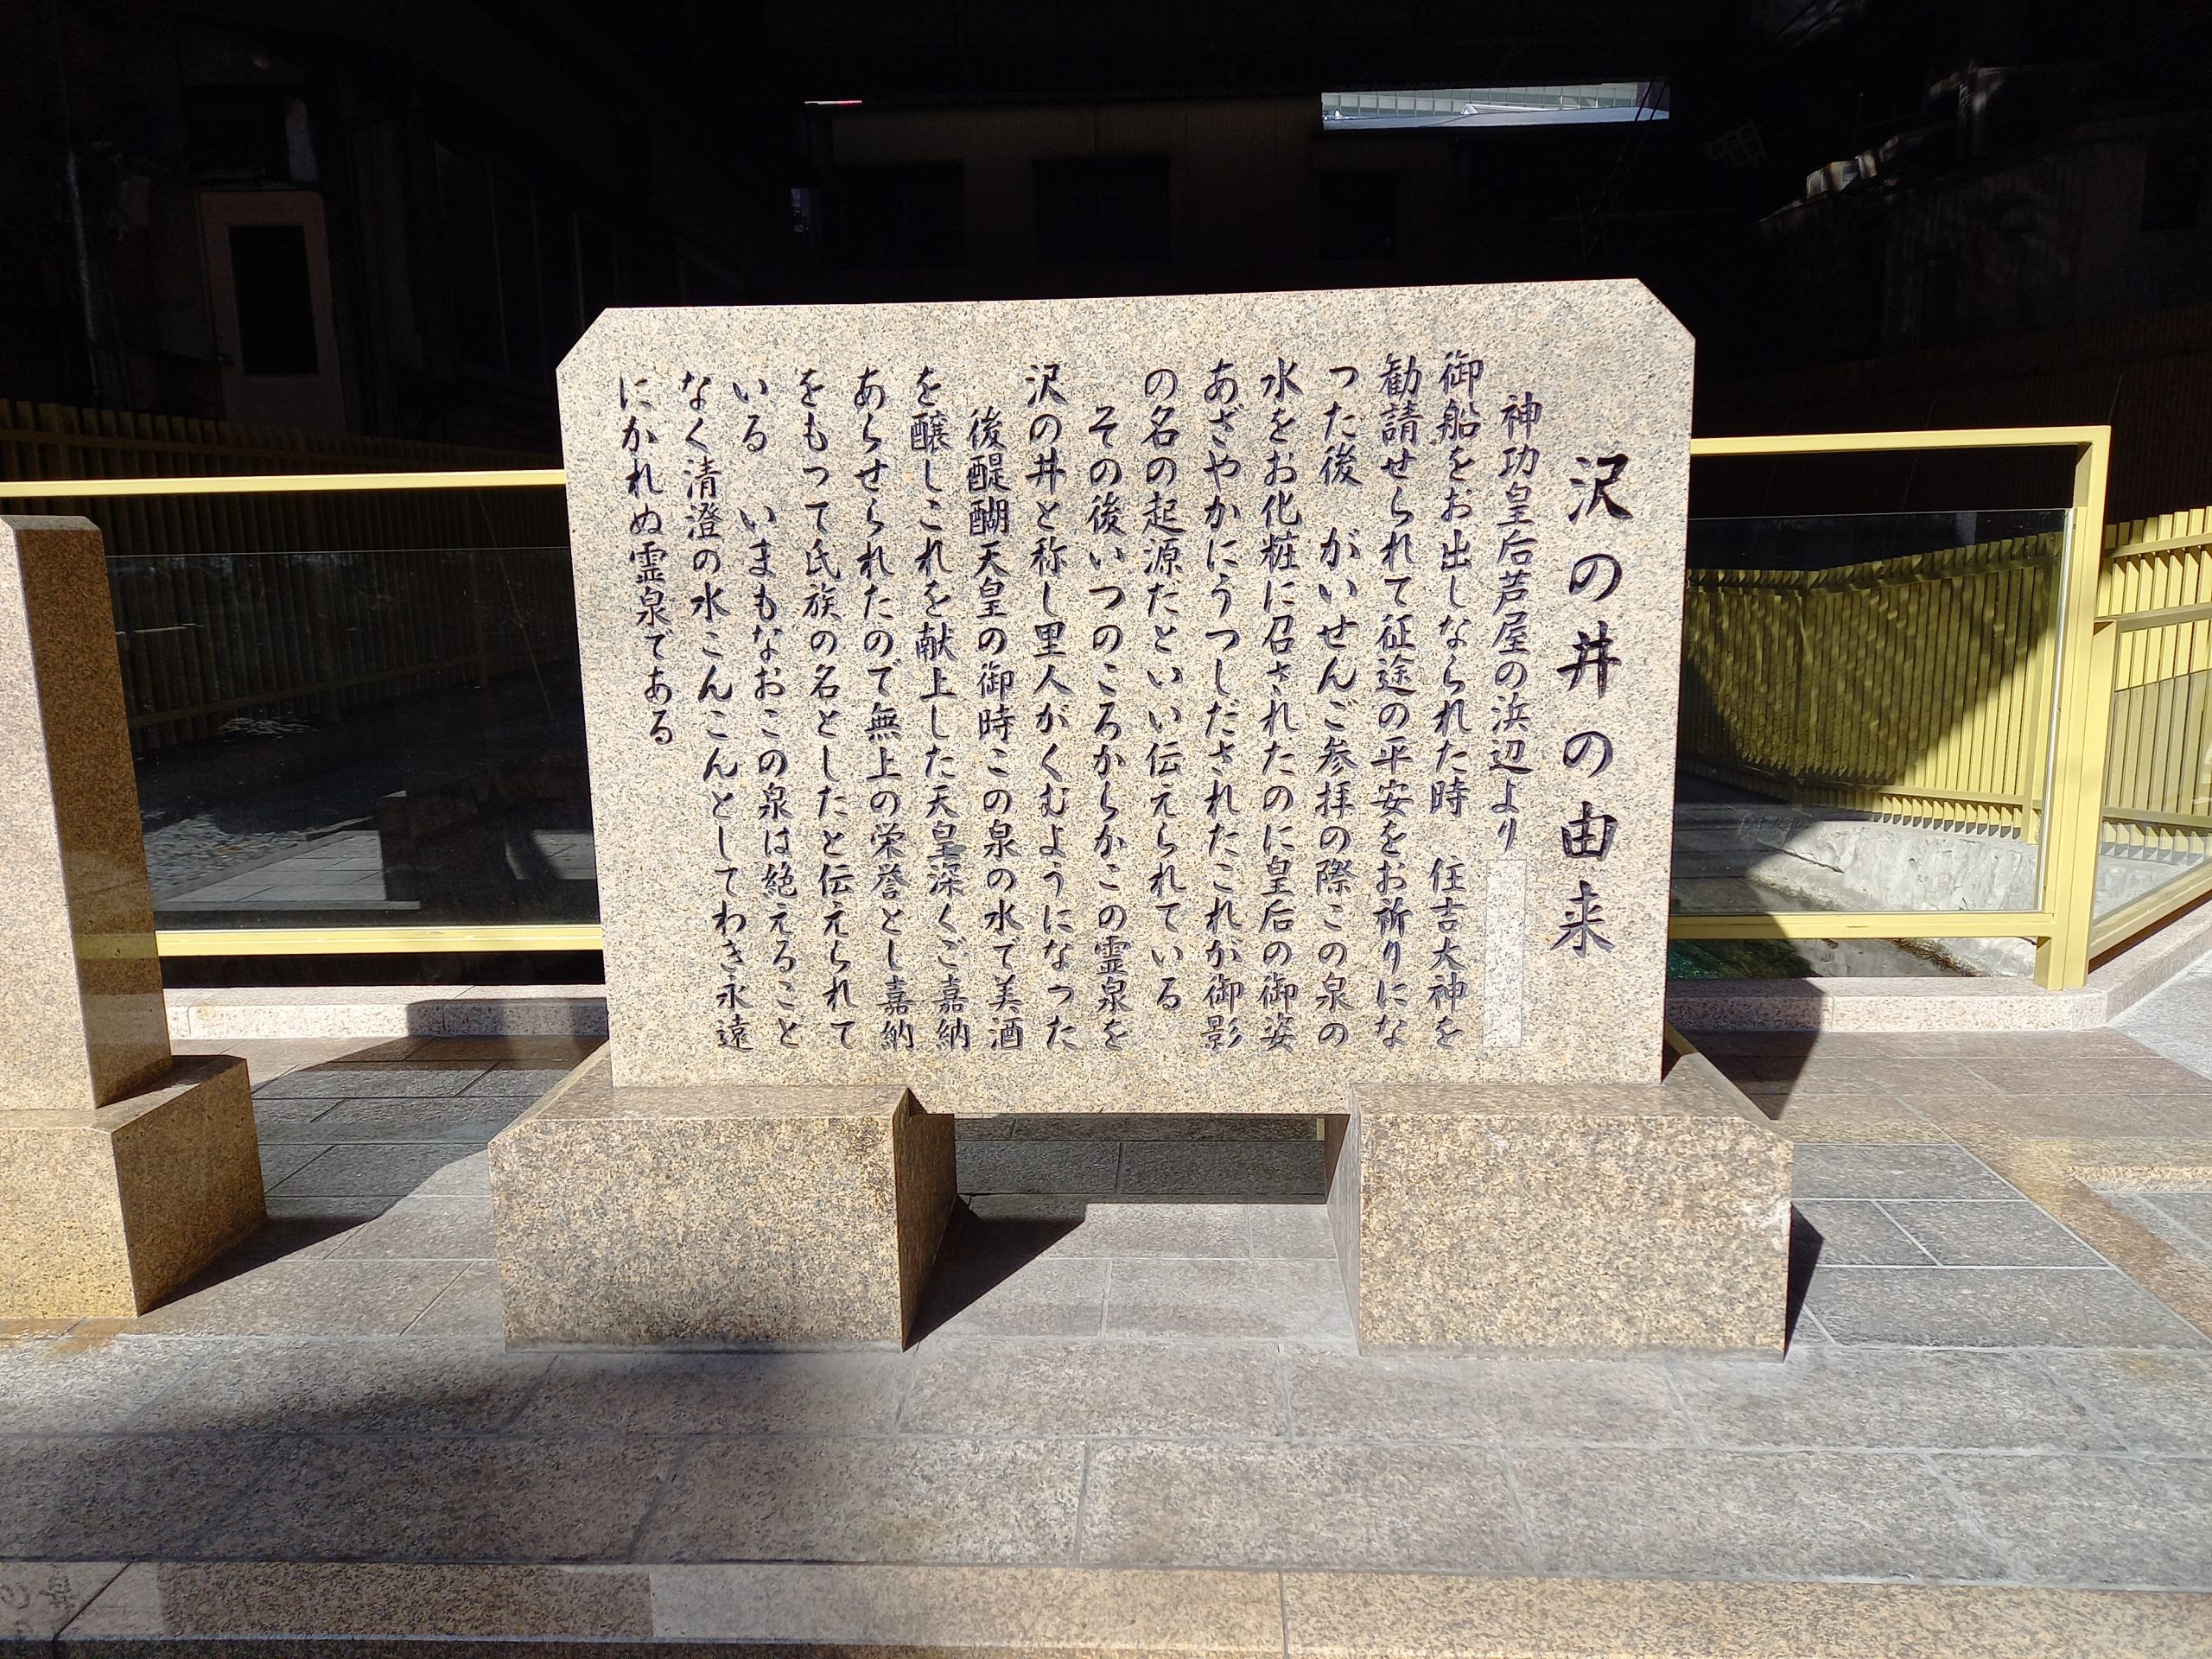 沢の井の由来
神功皇后芦屋の浜辺より
御船をお出しなられた時 住吉大神を
勧請せられて征途の平安をお祈りにな
つた後 がいせんご参拝の際この泉の
水をお化粧に召されたのに皇后の御姿
あざやかにうつしだされたこれが御影
の名の起源だといい伝えられている
その後いつのころからかこの霊泉を
沢の井と称し里人がくむようになった
後醍醐天皇の御時この泉の水で美酒
を醸しこれを献上した天皇深くご嘉納
あらせられたので無上の栄誉とし嘉納
をもつて氏族の名としたと伝えられて
いる いまもなおこの泉は絶えること
なく清澄の水こんこんとしてわき永遠
にかれぬ霊泉である